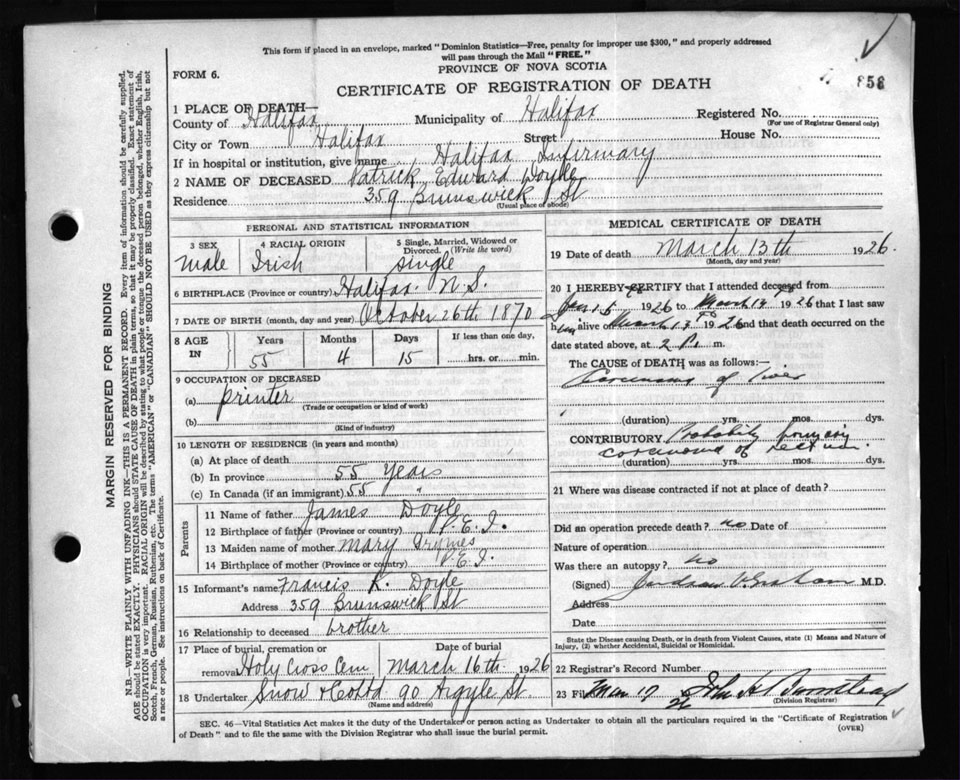 This form if placed in an envelope, marked "Dominion Statistics—Free, penalty for improper use $300," and properly addressed
will pass through the Mail "FREE."
PROVINCE OF NOVA SCOTIA
FORM 6.
858
CERTIFICATE OF REGISTRATION OF DEATH
1 PLACE OF DEATH—
County of Halifax Municipality of Halifax Registered No.
(For use of Registrar General only)
City or Town Halifax Street House No.
If in hospital or institution, give name Halifax Infirmary
2 NAME OF DECEASED Patrick Edward Doyle
Residence 359 Brunswick St
(Usual place of abode)
PERSONAL AND STATISTICAL INFORMATION
3 SEX 4 RACIAL ORIGIN 5 Single, Married, Widowed or
Divorced (Write the word)
male Irish single
6 BIRTHPLACE (Province or country) Halifax N.S.
7 DATE OF BIRTH (month, day and year) October 26th 1870
8 AGE IN Years Months Days If less than one day,
55 4 15 hrs. or min.
9 OCCUPATION OF DECEASED
(a) printer
(Trade or occupation or kind of work)
(b)
(Kind of industry)
10 LENGTH OF RESIDENCE (in years and months)
(a) At place of death
(b) In province 55 years
(c) In Canada (if an immigrant) 55 "
Parents
11 Name of father James Doyle
12 Birthplace of father (Province or country) P.E.I.
13 Maiden name of mother Mary
14 Birthplace of mother (Province or country) P.E.I.
15 Informant's name Francis R. Doyle
Address 359 Brunswick St
16 Relationship to deceased brother
17 Place of burial, cremation or Date of burial
removal Holy Cross Cem March 16th 1926
18 Undertaker Snow & Co Ltd 90 Argyle St.
(Name and address)
MEDICAL CERTIFICATE OF DEATH
19 Date of death March 13th 1926
(Month, day and year)
20 I HEREBY CERTIFY that I attended deceased from
Jan 15 1926 to March 1926 that I last saw
him alive March 1926 and that death occurred on
date stated above, at 2 P. m.
The CAUSE of DEATH was as follows:
Carcinoma of liver
(duration) yrs. mos. dys.
CONTRIBUTORY Probably primary
carcinoma of rectum
(duration) yrs. mos. dys.
21 Where was disease contracted if not at place of death?
Did an operation precede death? no Date of
Nature of operation
Was there an autopsy? no
(Signed) Graham M.D.
Address
Date
State the Disease causing Death, or in death from Violent Causes, state (1) Means and Nature of
Injury, (2) whether Accidental, Suicidal or Homicidal.
22 Registrar's Record Number
23 Filed Mar 17 26 John H Barnstead
(Division Registrar)
SEC. 46—Vital Statistics Act makes it the duty of the Undertaker or person acting as Undertaker to obtain all the particulars required in the "Certificate of Registration
of Death" and to file the same with the Division Registrar who shall issue the burial permit.
(OVER)
MARGIN RESERVED FOR BINDING
N.B.—WRITE PLAINLY WITH UNFADING INK—THIS IS A PERMANENT RECORD. Every item of information should be carefully supplied.
AGE should be stated EXACTLY. PHYSICIANS should STATE CAUSE OF DEATH in plain terms, so that it may be properly classified. Exact statement of
OCCUPATION is very important. RACIAL ORIGIN will be described by stating to what people or tongue the deceased person belonged, whether English, Irish,
Scotch, French, German, Russian, Ruthenian, etc. The terms "AMERICAN" or "CANADIAN" SHOULD NOT BE USED as they express citizenship but not
a race or people. See instructions on back of Certificate.